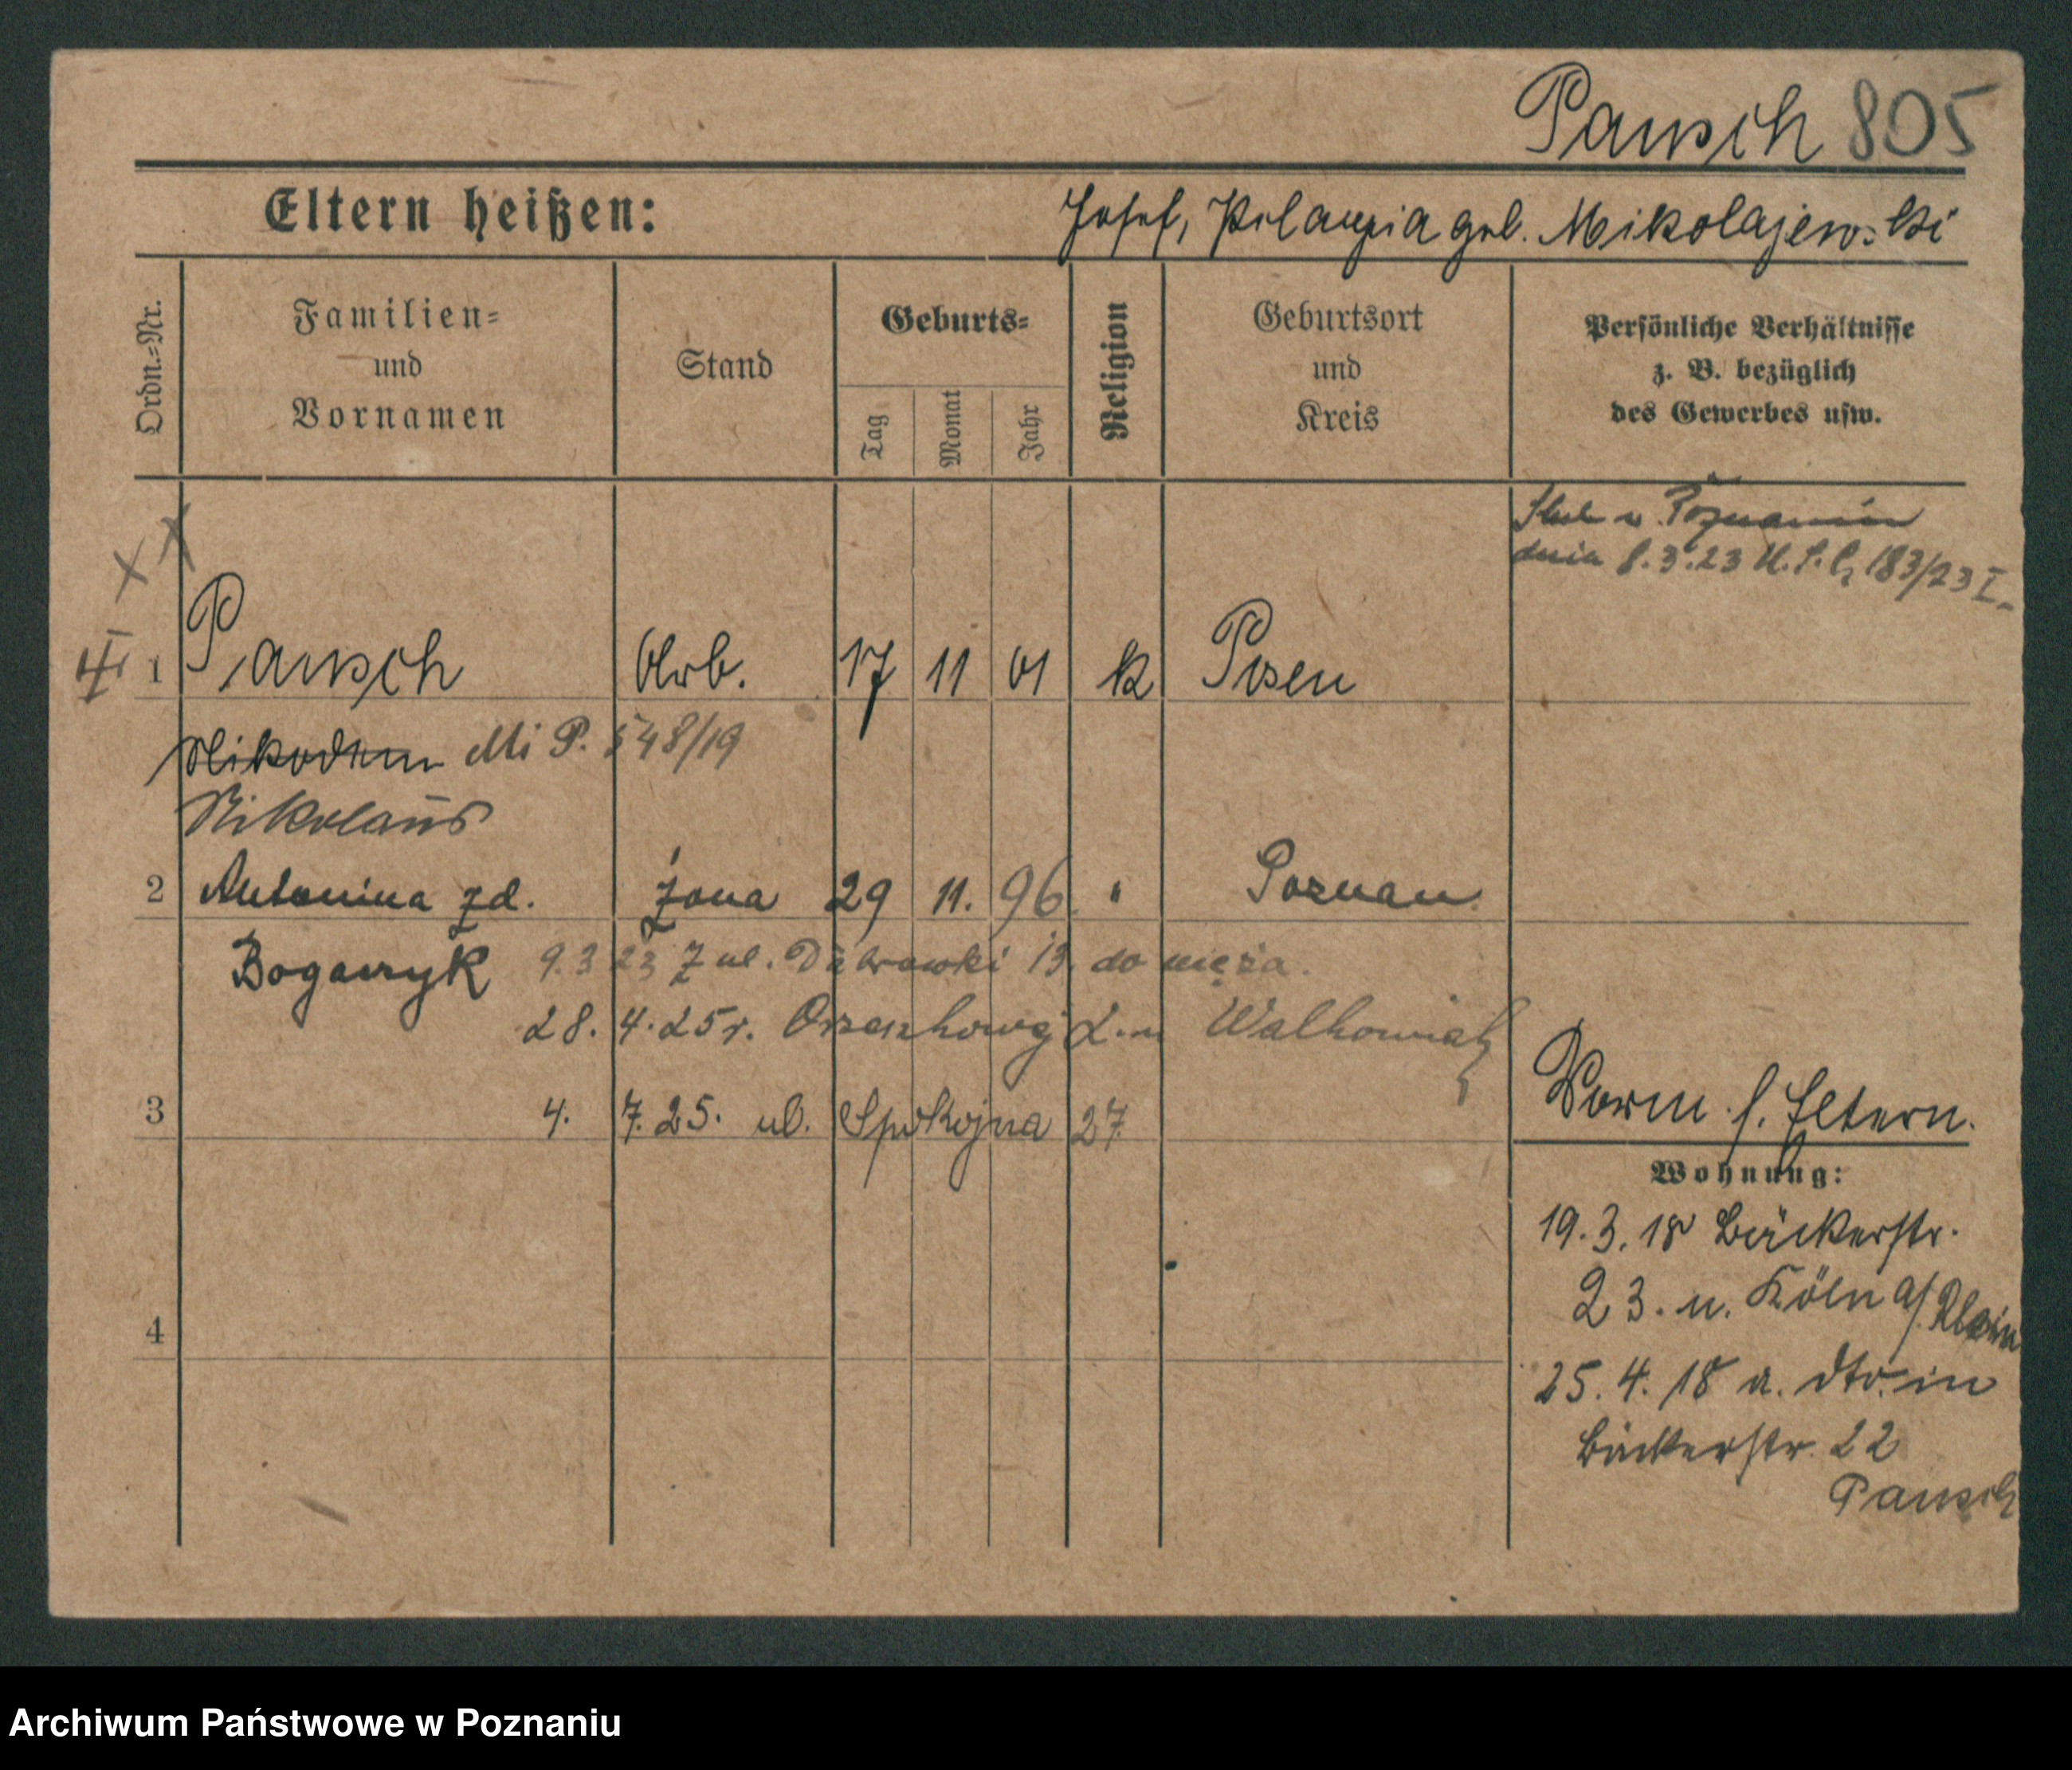 Pausch 805
Eltern heißen: Josef, Pelagia geb. Mikolajewski
Ordn.=Nr.
Familien=
und
Vornamen
Stand
Geburts=
Tag
Monat
Jahr
Religion
Geburtsort
und
Kreis
Persönliche Verhältnisse
z. B. bezüglich
des Gewerbes usw.
Ślub w Poznaniu
dnia 8.3.23 U.S.C. 183/23 I.
1 Pausch Arb. 17 11 01 K Posen
Nikodem Mi P. 548/19
Nikolaus
2 Antonina zd. żona 29 11. 96 " Poznań
9.3 23 z ul. Dąbrowski 13. do męża.
28. 4.25 r. 2. u Walkowiak
3 4. 7.25. ul. Spokojna 27
Vorm. s. Eltern.
Wohnung:
19.3.18 Bäckerstr.
23. n. Köln a/Rhein
4
25.4.18 a. dto. in
Bäckerstr. 22
Pausch
Archiwum Państwowe w Poznaniu